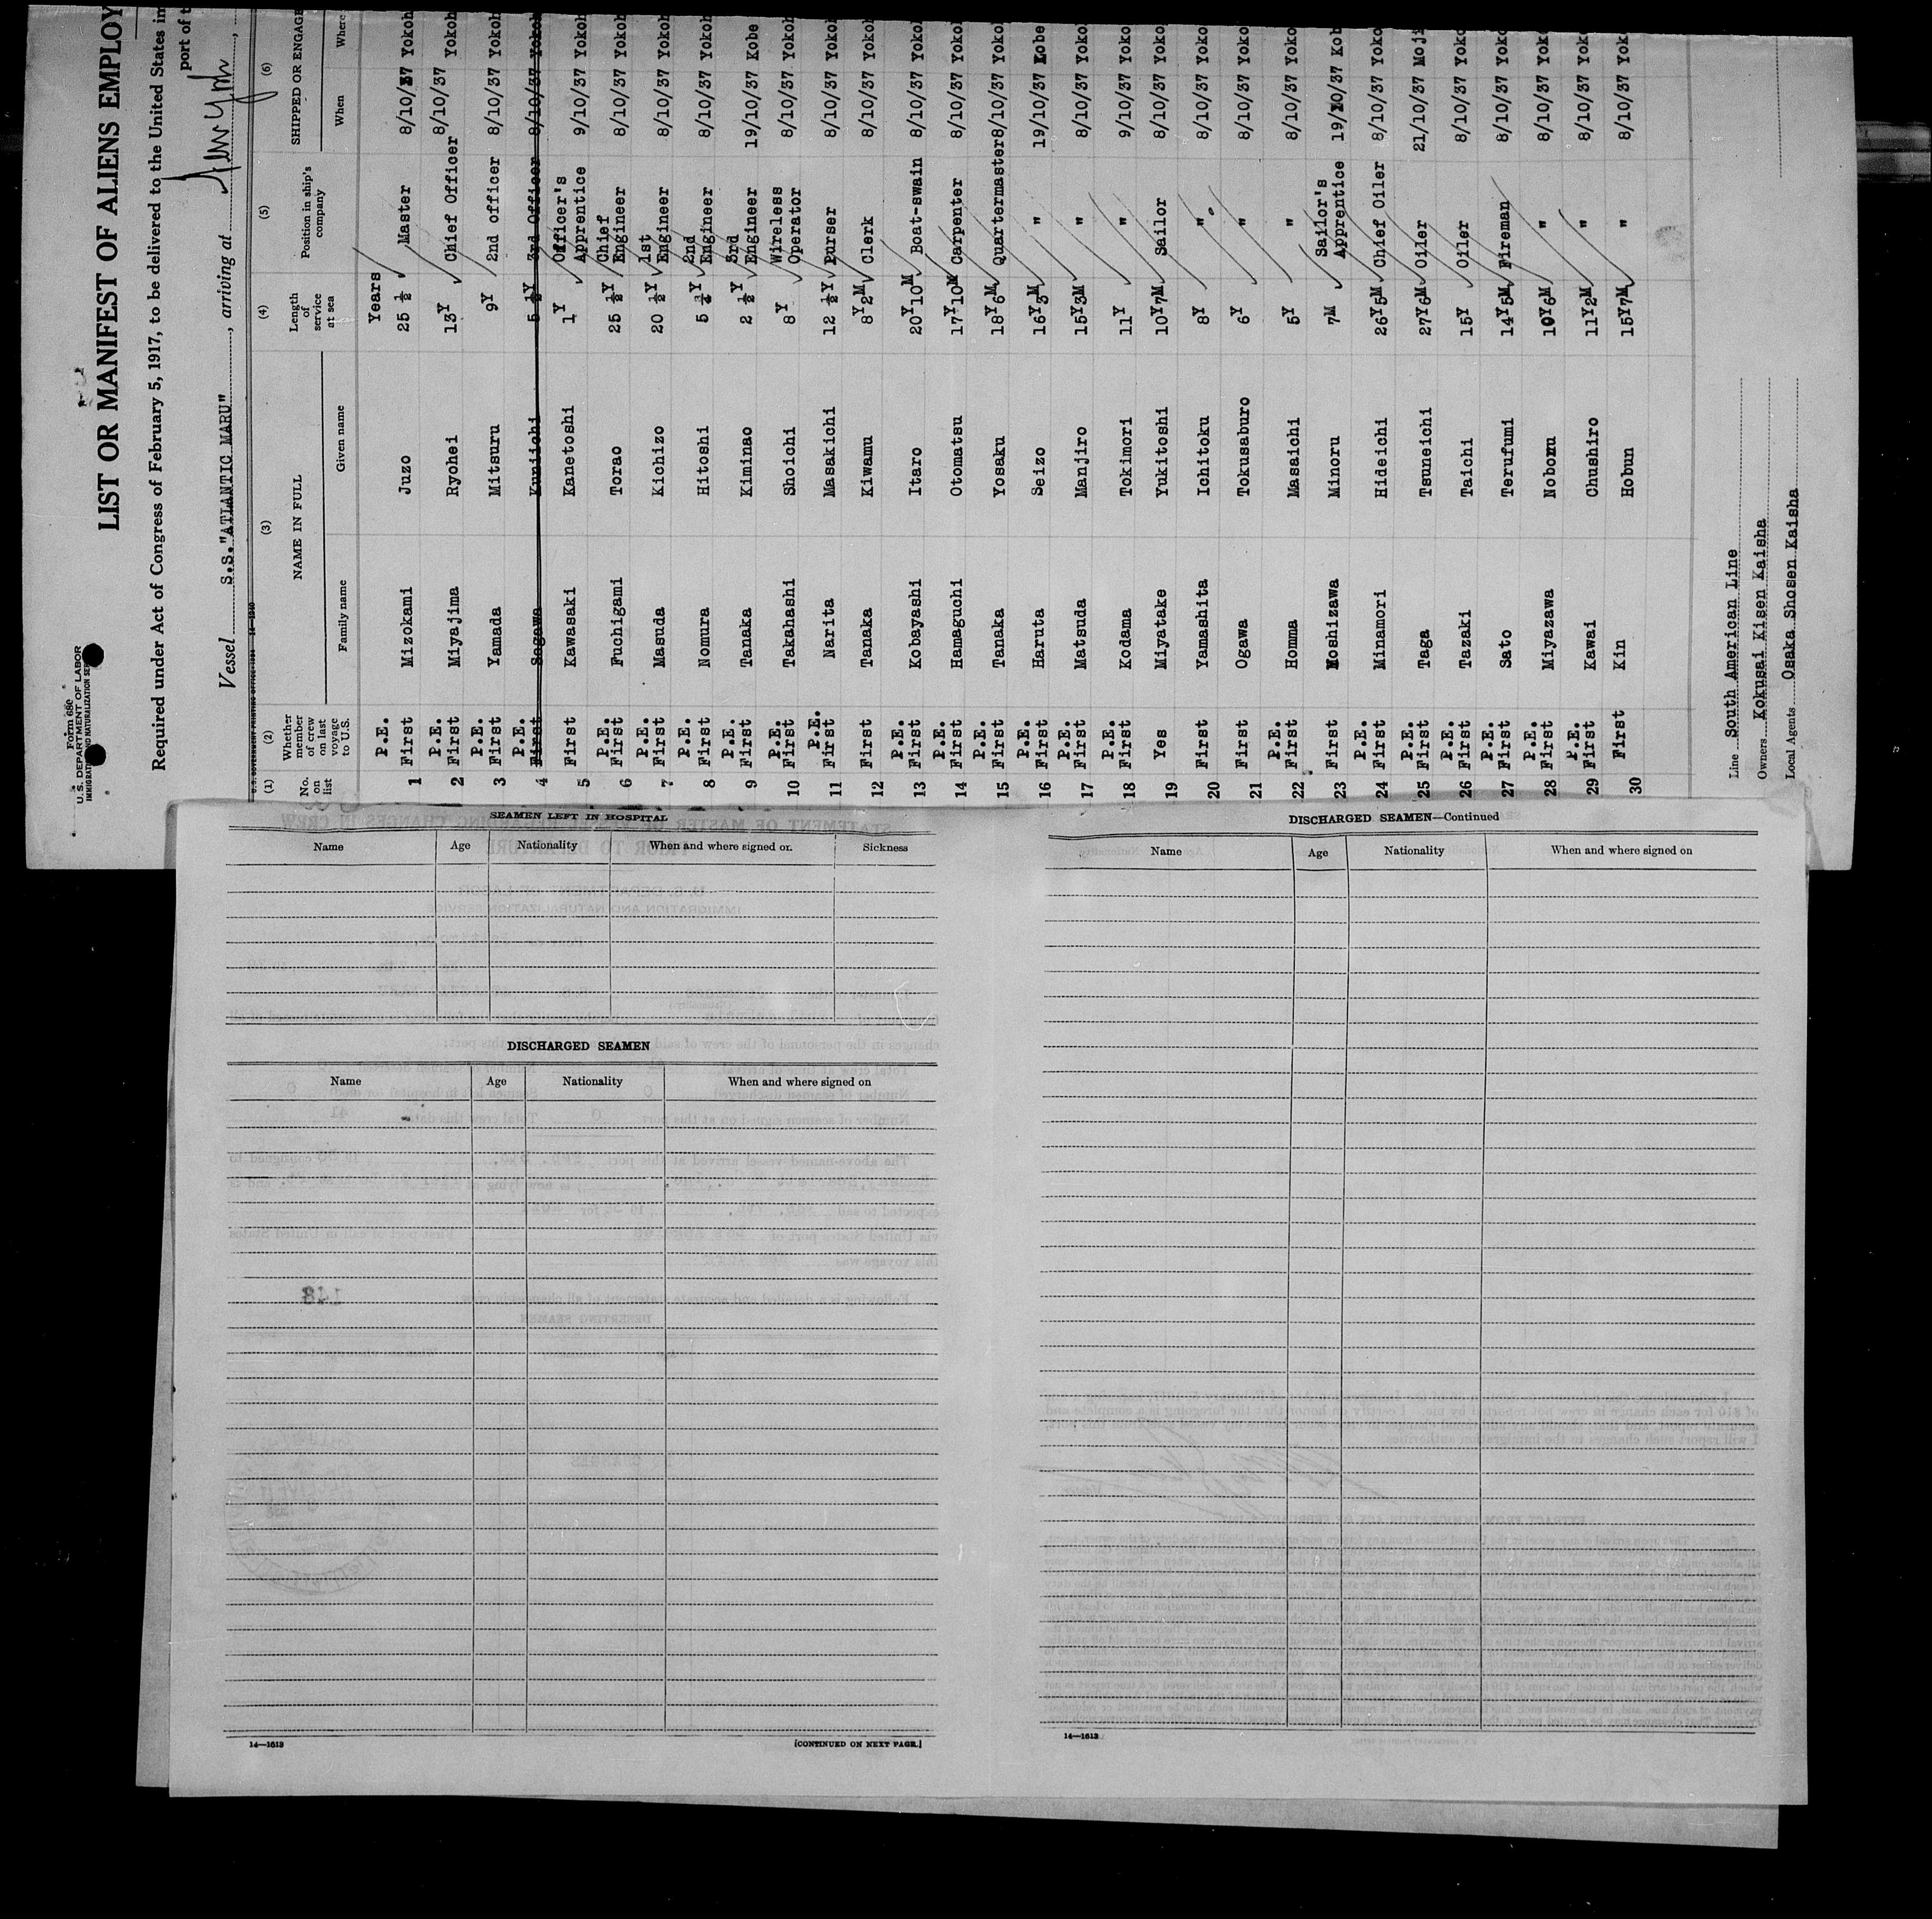 Form 680
U.S. DEPARTMENT OF LABOR
IMMIGRATION AND NATURALIZATION SER
LIST OR MANIFEST OF ALIENS EMPLOY
Required under Act of Congress of February 5, 1917, to be delivered to the United States im
port of t
Vessel S.S."ATLANTIC MARU", arriving at New York,
(1) (2) (3) (4) (5) (6)
No. on list Whether member of crew on last voyage to U.S. NAME IN FULL Length of service at sea Position in ship's company SHIPPED OR ENGAGE
Family name Given name When Where
Years
1 P.E. First Mizokami Juzo 25 ½ Master 8/10/37 Yokoh
2 P.E. First Miyajima Ryohei 13Y Chief Officer 8/10/37 Yokoh
3 P.E. First Yamada Mitsuru 9Y 2nd officer 8/10/37 Yokoh
4 P.E. First Sagawa Kuniichi 5 ½Y 3rd Officer 8/10/37 Yokoh
5 First Kawasaki Kanetoshi 1Y Officer's Apprentice 9/10/37 Yokoh
6 P.E. First Fuchigami Torao 25 ½Y Chief Engineer 8/10/37 Yokoh
7 P.E. First Masuda Kichizo 20 ½Y 1st Engineer 8/10/37 Yokoh
8 P.E. First Nomura Hitoshi 5 Y 2nd Engineer 8/10/37 Yokoh
9 P.E. First Tanaka Kiminao 2 ½Y 3rd Engineer 19/10/37 Kobe
10 P.E. First Takahashi Shoichi 8Y Wireless Operator 8/10/37 Yokoh
11 P.E. First Narita Masakichi 12 ½Y Purser 8/10/37 Yokoh
12 First Tanaka Kiwamu 8Y2M Clerk 8/10/37 Yokoh
13 P.E. First Kobayashi Itaro 20Y10M Boat-swain 8/10/37 Yokoh
14 P.E. First Hamaguchi Otomatsu 17Y10M Carpenter 8/10/37 Yokoh
15 P.E. First Tanaka Yosaku 18Y6M Quartermaster 8/10/37 Yokoh
16 P.E. First Haruta Seizo 16Y3M " 19/10/37 Kobe
17 P.E. First Matsuda Manjiro 15Y3M " 8/10/37 Yokoh
18 P.E. First Kodama Tokimori 11Y " 9/10/37 Yoko
19 Yes Miyatake Yukitoshi 10Y7M Sailor 8/10/37 Yoko
20 First Yamashita Ichitoku 8Y " 8/10/37 Yoko
21 First Ogawa Tokusaburo 6Y " 8/10/37 Yoko
22 P.E. First Homma Masaichi 5Y " 8/10/37 Yoko
23 First Hoshizawa Minoru 7M Sailor's Apprentice 19/10/37 Kob
24 P.E. First Minamori Hideichi 26Y5M Chief Oiler 8/10/37 Yoko
25 P.E. First Taga Tsuneichi 27Y6M Oiler 21/10/37 Moji
26 P.E. First Tazaki Taichi 15Y Oiler 8/10/37 Yoko
27 P.E. First Sato Terufumi 14Y5M Fireman 8/10/37 Yoko
28 P.E. First Miyazawa Nobomu 10Y6M " 8/10/37 Yoko
29 P.E. First Kawai Chushiro 11Y2M " 8/10/37 Yoko
30 First Kin Hobun 15Y7M " 8/10/37 Yok
Line South American Line
Owners Kokusai Kisen Kaisha
Local Agents Osaka Shosen Kaisha
SEAMEN LEFT IN HOSPITAL
Name Age Nationality When and where signed or. Sickness
DISCHARGED SEAMEN
Name Age Nationality When and where signed on
14—1613
[CONTINUED ON NEXT PAGE.]
DISCHARGED SEAMEN—Continued
Name Age Nationality When and where signed on
14—1613